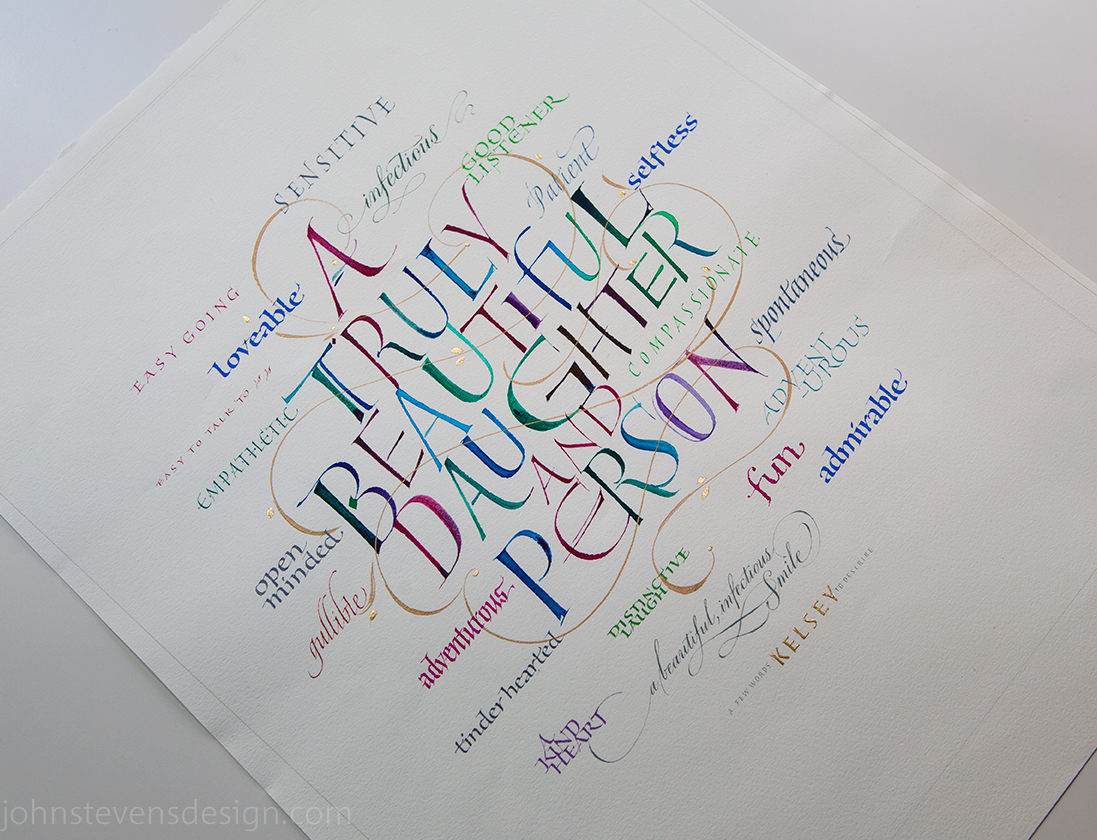 SENSITIVE
infectious
GOOD
LISTENER
Patient
selfless
EASY GOING
loveable
EASY TO TALK TO
EMPATHETIC
A
TRULY
BEAUTIFUL
DAUGHTER
AND
PERSON
COMPASSIONATE
spontaneous
ADVENT
-UROUS
admirable
fun
open
minded
gullible
adventurous
tinder hearted
DISTINCTIVE
LAUGH
a beautiful, infectious
Smile
A
KIND
HEART
A FEW WORDS KELSEY TO DESCRIBE
johnstevensdesign.com